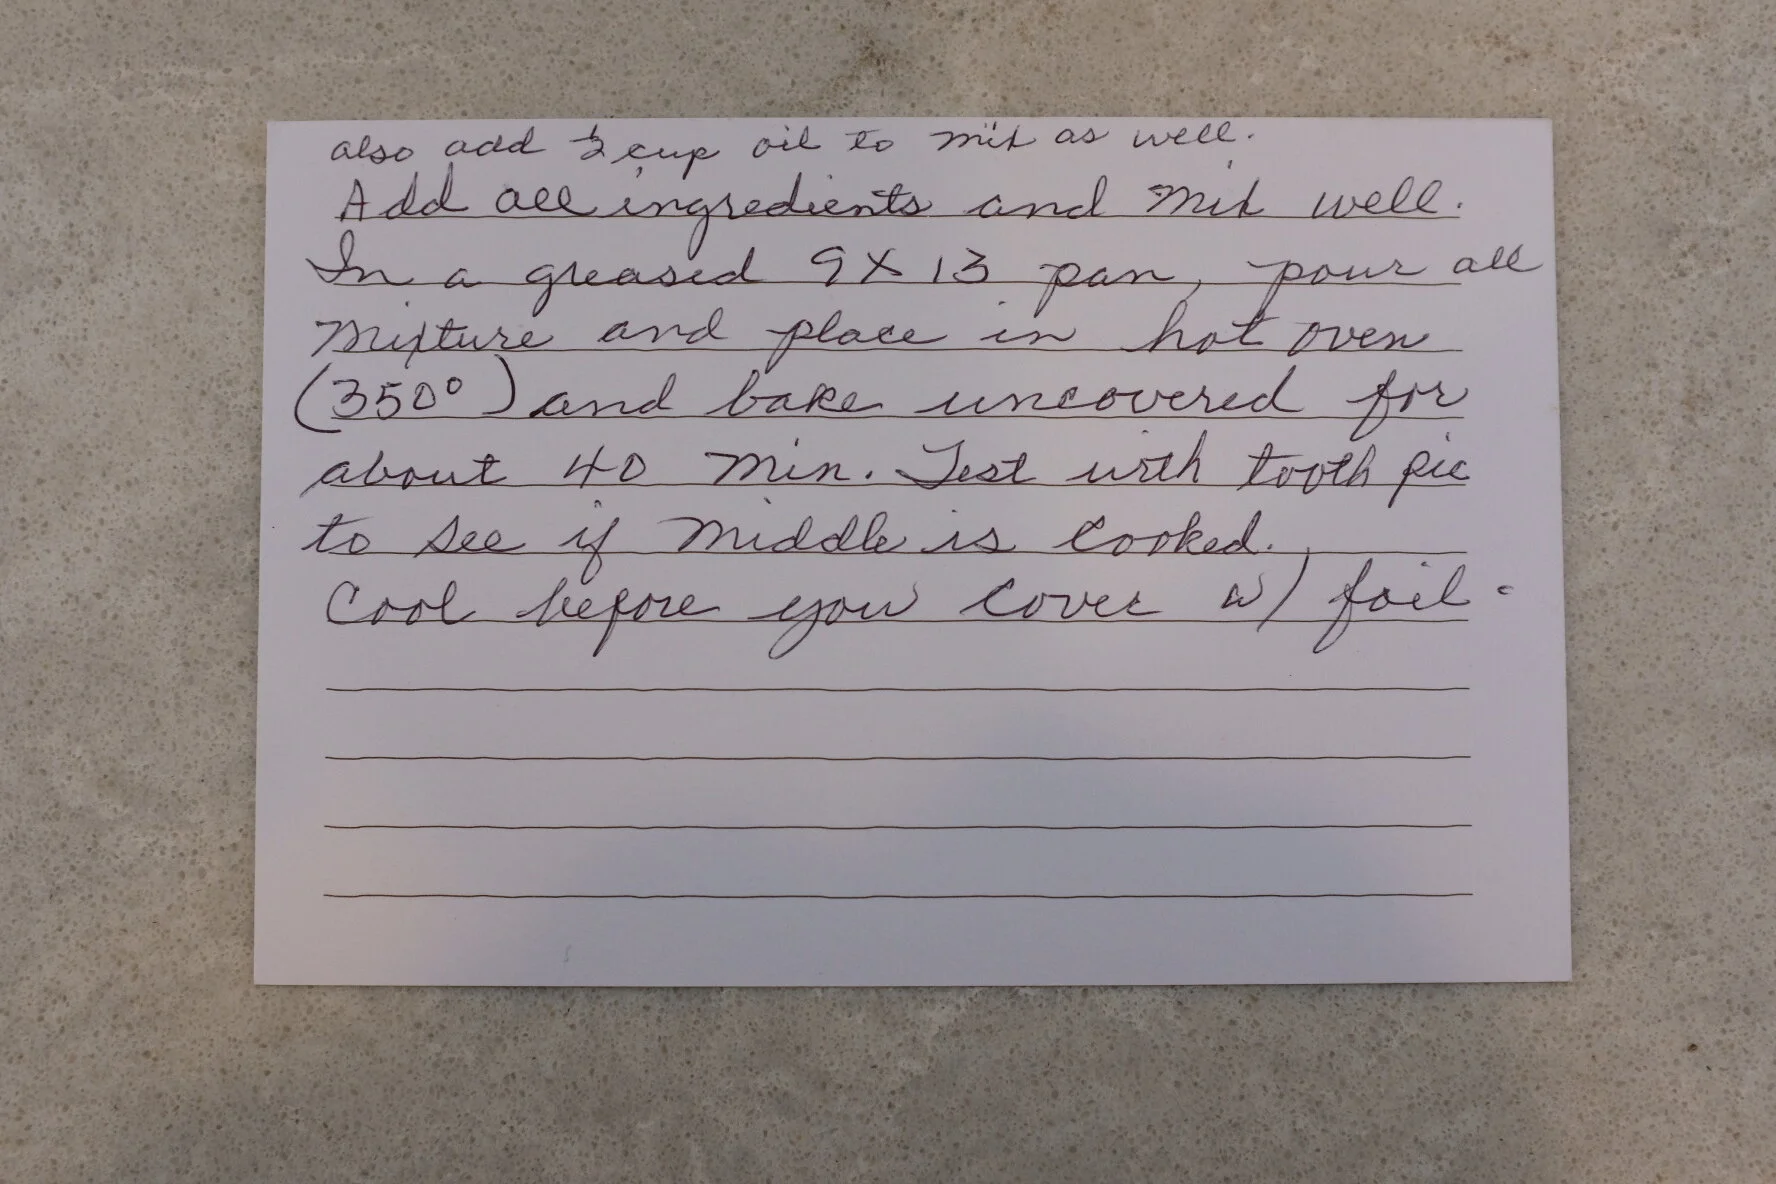 also add ½ cup oil to mix as well.
Add all ingredients and mix well.
In a greased 9X13 pan, pour all
mixture and place in hot oven
(350°) and bake uncovered for
about 40 min. Test with tooth pic
to see if middle is cooked.
Cool before you cover w/ foil.